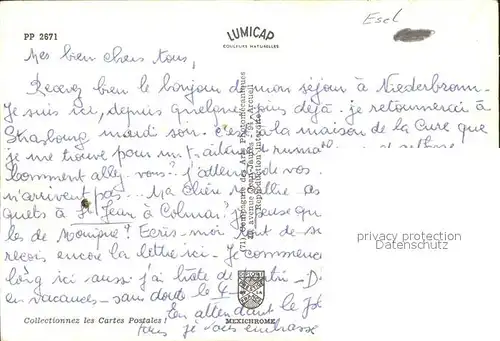 PP 2671
LUMICAP
COULEURS NATURELLES
Esel
Mes bien chers tous,
Recevez bien le bonjour de mon séjour à Niederbronn.
Je suis ici, depuis quelques jours déjà. je retournerai à
Strasbourg mardi soir. c'est à la maison de la Cure que
je me trouve pour un traitement
Comment allez vous? j'attends de vos
n'arrivent pas... Ma chère
quets à St Jean à Colmar? je pense qu
les de Monique? Ecris-moi
reçois encore la lettre ici - Je commence
long ici aussi j'ai hâte de
en vacances - sans doute le
En attendant le
je vous embrasse
(71) Compagnie des Arts Photomécaniques
Reproduction interdite
privacy protection
Datenschutz
Collectionnez les Cartes Postales !
MEXICHROME